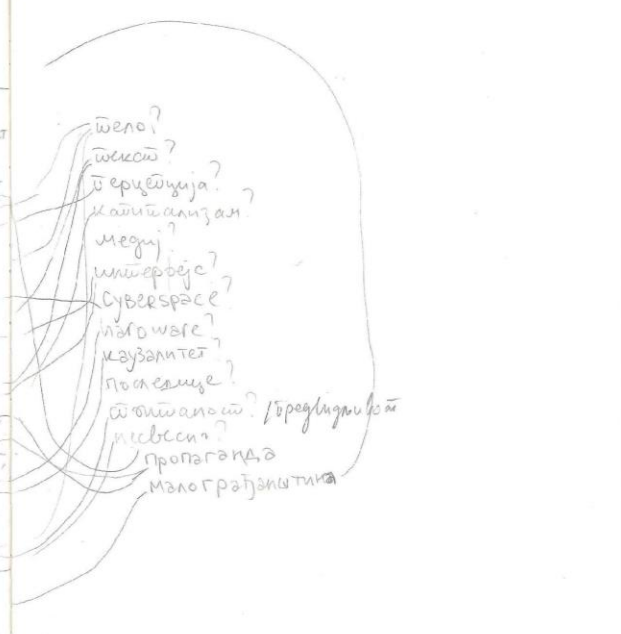 тело?
текст?
перцепција?
капитализам?
медиј?
интерфејс?
Cyberspace?
hardware?
каузалитет?
последице?
/предвидљивост
пропаганда
малограђанштина